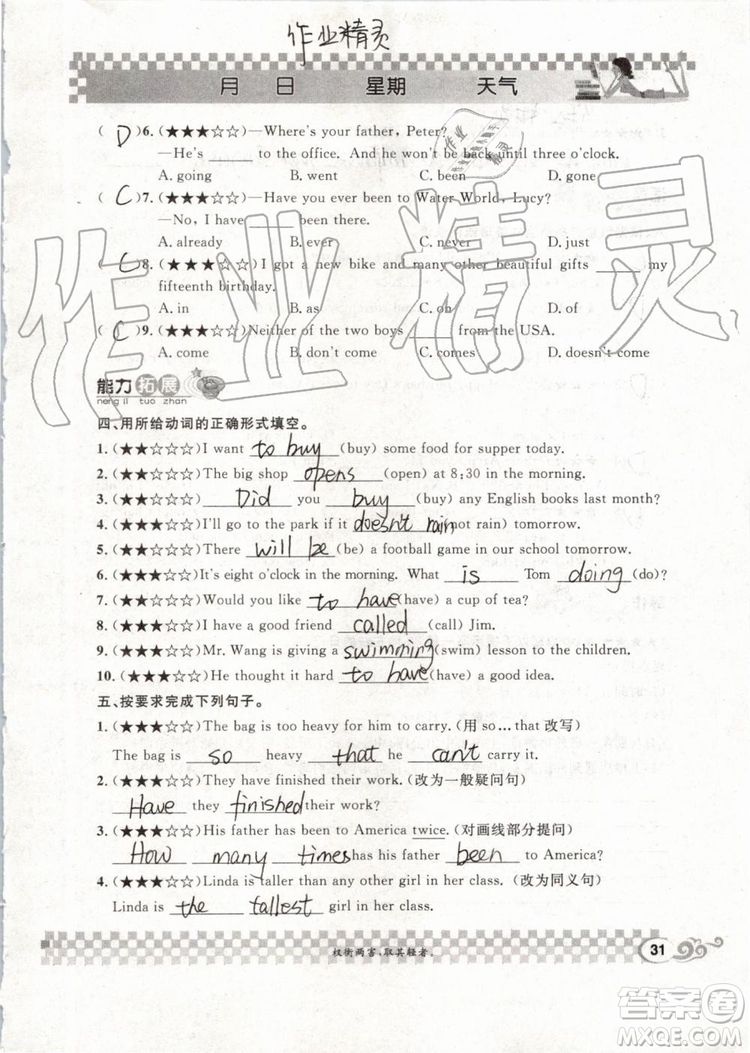 作业精灵
月 日 星期 天气
( D )6. (★★★☆☆)—Where's your father, Peter?
—He's ______ to the office. And he won't be back until three o'clock.
A. going B. went C. been D. gone
( C )7. (★★★☆☆)—Have you ever been to Water World, Lucy?
—No, I have ______ been there.
A. already B. ever C. never D. just
( C )8. (★★★☆☆)I got a new bike and many other beautiful gifts ______ my
fifteenth birthday.
A. in B. as C. on D. of
( C )9. (★★★☆☆)Neither of the two boys ______ from the USA.
A. come B. coming C. comes D. to come
能力拓展
neng li tuo zhan
四、用所给动词的正确形式填空。
1. (★★☆☆☆)I want to buy (buy) some food for supper today.
2. (★★☆☆☆)The big shop opens (open) at 8:30 in the morning.
3. (★★☆☆☆) Did you buy (buy) any English books last month?
4. (★★☆☆☆)I'll go to the park if it doesn't rain (not rain) tomorrow.
5. (★★☆☆☆)There will be (be) a football game in our school tomorrow.
6. (★★☆☆☆)It's eight o'clock in the morning. What is Tom doing (do)?
7. (★★☆☆☆)Would you like to have (have) a cup of tea?
8. (★★☆☆☆)I have a good friend called (call) Jim.
9. (★★★☆☆)Mr. Wang is giving a swimming (swim) lesson to the children.
10. (★★★☆☆)He thought it hard to have (have) a good idea.
五、按要求完成下列句子。
1. (★★★☆☆)The bag is too heavy for him to carry. (用 so…that 改写)
The bag is so heavy that he can't carry it.
2. (★★★☆☆)They have finished their work. (改为一般疑问句)
Have they finished their work?
3. (★★★☆☆)His father has been to America twice. (对画线部分提问)
How many times has his father been to America?
4. (★★★☆☆)Linda is taller than any other girl in her class. (改为同义句)
Linda is the tallest girl in her class.
权衡两害,取其轻者。
31
作业精灵
作业精灵
答案圈
MXQE.COM